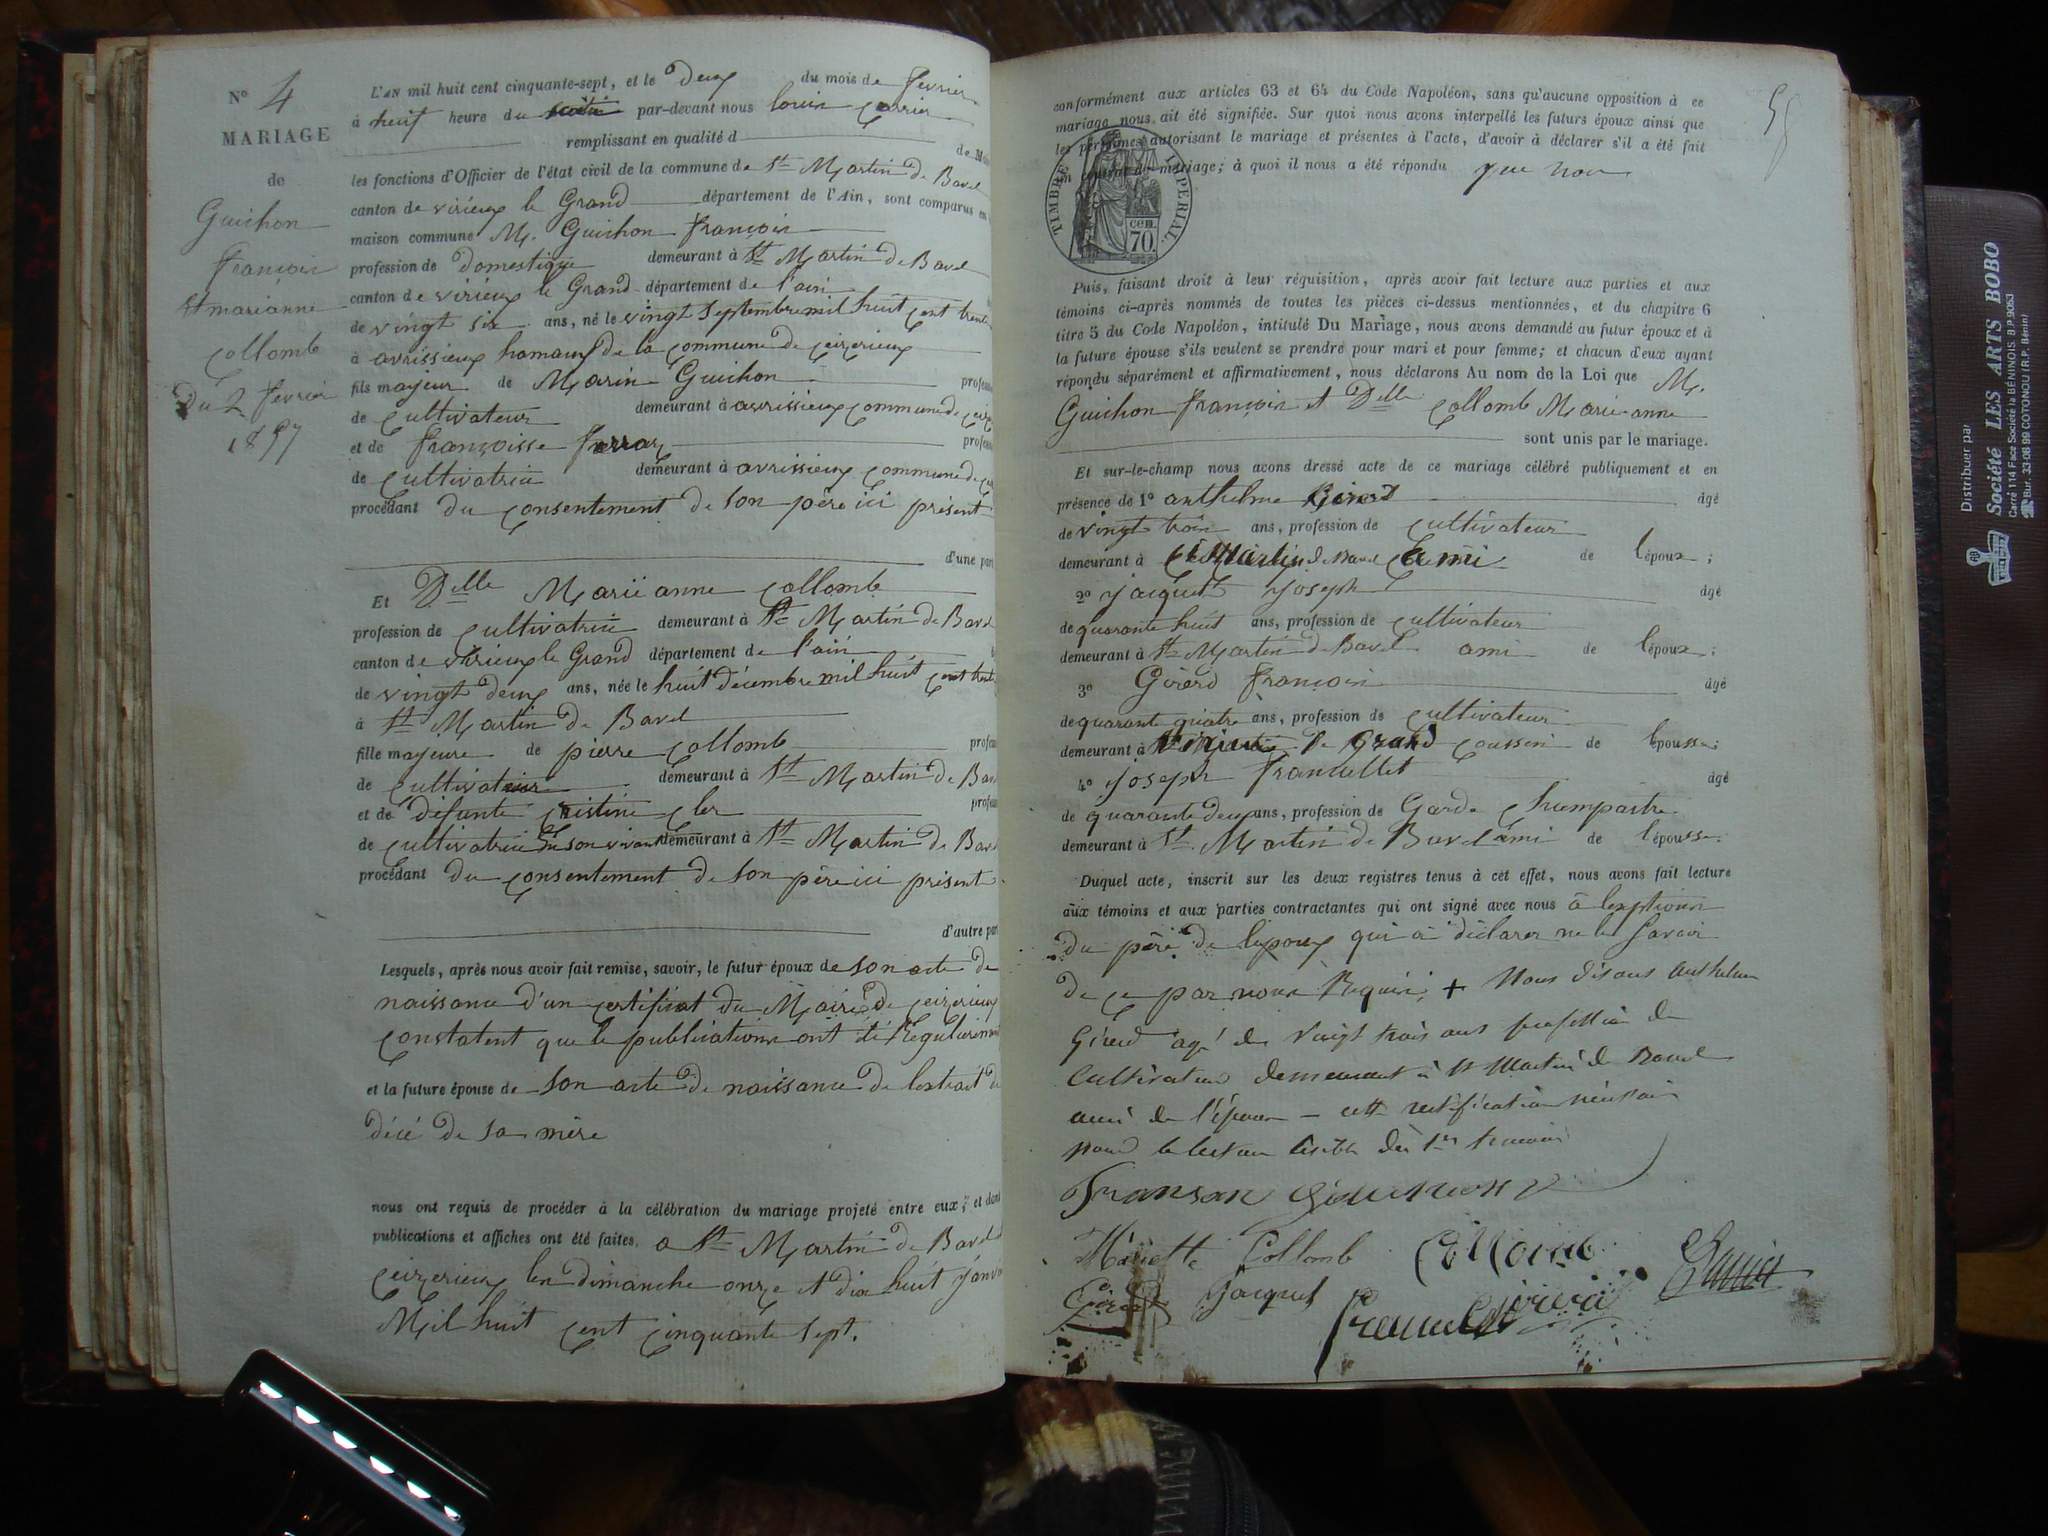 N° 4
MARIAGE
de
Guichon
françois
et marianne
Collomb
Du 2 février
1857
L'AN mil huit cent cinquante-sept, et le Deux du mois de février
à neuf heure du par-devant nous louis Carrier
remplissant en qualité d de M
les fonctions d'Officier de l'état civil de la commune de St Martin De Bavel
canton de virieux le Grand département de l'Ain, sont comparus en
maison commune M. Guichon françois
profession de Domestique demeurant à St Martin De Bavel
canton de virieux le Grand département de l'ain
de vingt six ans, né le vingt Septembre mil huit cent trente
à avrissieux hamaux de la commune de Ceizerieux
fils majeur de Marin Guichon profess
de Cultivateur demeurant à avrissieux commune de Ceiz
et de françoisse ferraz profess
de Cultivatrice demeurant à avrissieux commune de Cei
procédant du consentement de son père ici présent
d'une part
Et Delle Mariianne Collomb
profession de Cultivatrice demeurant à St Martin De Bavel
canton de virieux le Grand département de l'ain
de vingt deux ans, née le huit décembre mil huit cent trente
à St Martin De Bavel
fille majeure de pierre Collomb profess
de Cultivateur demeurant à St Martin De Bav
et de défunte Cristine Cler profess
de Cultivatrice En son vivant demeurant à St Martin De Bavel
procédant du consentement de son père ici présent
d'autre part
Lesquels, après nous avoir fait remise, savoir, le futur époux de son acte de
naissance d'un certificat du Maire de Ceizerieux
constatent que le publications ont été Régulièrement
et la future épouse de son acte de naissance de l'extrait de
décé de sa mère
nous ont requis de procéder à la célébration du mariage projeté entre eux, et dont
publications et affiches ont été faites, a St Martin de Bavel
Ceizerieux les dimanche onze et dix huit janvier
Mil huit cent cinquante sept.
conformément aux articles 63 et 64 du Code Napoléon, sans qu'aucune opposition à ce
mariage nous ait été signifiée. Sur quoi nous avons interpellé les futurs époux ainsi que
les personnes autorisant le mariage et présentes à l'acte, d'avoir à déclarer s'il a été fait
un contrat de mariage; à quoi il nous a été répondu que non
TIMBRE IMPERIAL
cen.
70
Puis, faisant droit à leur réquisition, après avoir fait lecture aux parties et aux
témoins ci-après nommés de toutes les pièces ci-dessus mentionnées, et du chapitre 6
titre 5 du Code Napoléon, intitulé Du Mariage, nous avons demandé au futur époux et à
la future épouse s'ils veulent se prendre pour mari et pour femme; et chacun d'eux ayant
répondu séparément et affirmativement, nous déclarons Au nom de la Loi que M.
Guichon françois et Delle Collomb Marie anne
sont unis par le mariage.
Et sur-le-champ nous avons dressé acte de ce mariage célébré publiquement et en
présence de 1° anthelme Girerd âgé
de vingt trois ans, profession de Cultivateur
demeurant à St Martin de Bavel ami de l'époux;
2° Jacquet Joseph âgé
de quarante huit ans, profession de Cultivateur
demeurant à St Martin De Bavel ami de l'époux;
3° Girerd françois âgé
de quarante quatre ans, profession de Cultivateur
demeurant à Virieu le Grand Coussin de l'épousse;
4° Joseph francillet âgé
de quarante deux ans, profession de Garde Champaitre
demeurant à St Martin de Bavel ami de l'épousse.
Duquel acte, inscrit sur les deux registres tenus à cet effet, nous avons fait lecture
aux témoins et aux parties contractantes qui ont signé avec nous à l'exption
du père de l'epoux qui a déclarer ne le Savoir
de ce par nous Requis; + Nous disons Anthelme
Girerd agé de Vingt trois ans profession de
Cultivateur demeurant à St Martin de Bavel
ami de l'époux — cette rectification nécessaire
pour la lecture lisible du 1er temoin
fransau Guichon
Mariette Collomb Collomb Carrier
Girerd Jacquet
francillet Girerd
Distribuer par
Société LES ARTS BOBO
Carré 114 Face Société la BÉNINOIS. B.P. 9053
Bur. 33-08-99 COTONOU (R.P. Bénin)